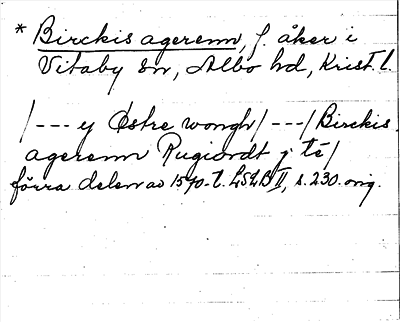 * Birckis agerenn, f. åker i
Vitaby sn, Albo hd, Krist. l.
/--- y Østre wongh/ ---/ Birckis
agerenn Rugiordt j té/
förra delen av 1570-t. LSLB II, s. 230. orig.